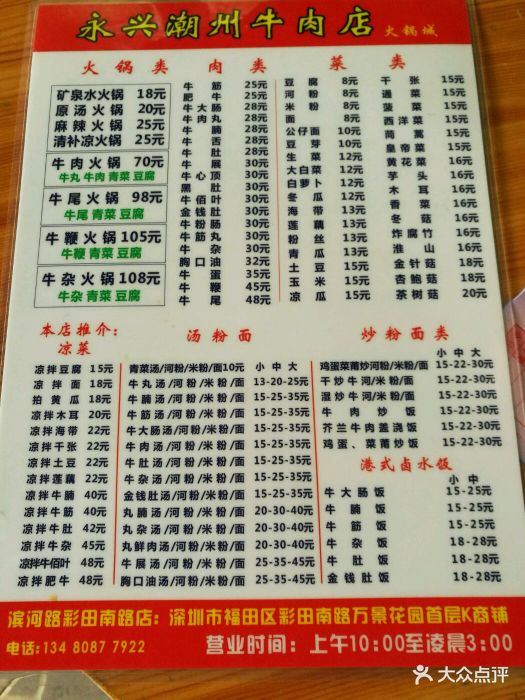 永兴潮州牛肉店 火锅城
火锅类
矿泉水火锅 18元
原汤火锅 20元
麻辣火锅 25元
清补凉火锅 25元
牛肉火锅 70元
牛丸 牛肉 青菜 豆腐
牛尾火锅 98元
牛尾 青菜 豆腐
牛鞭火锅 105元
牛鞭 青菜 豆腐
牛杂火锅 108元
牛杂 青菜 豆腐
肉类
牛筋 25元
肥牛 25元
牛大肠 25元
牛肉丸 25元
牛腩 25元
牛舌 25元
牛肚 25元
牛展 30元
牛心顶 30元
黑肚 30元
牛佰叶 30元
金钱肚 30元
牛粉肠 30元
牛筋丸 30元
牛杂 30元
胸口油 32元
牛蛋 35元
牛鞭 45元
牛尾 48元
菜类
豆腐 8元
河粉 8元
米粉 8元
面 8元
公仔面 10元
豆芽 10元
生菜 12元
大白菜 12元
白萝卜 12元
冬瓜 12元
海带 12元
莲藕 13元
粉丝 13元
青瓜 13元
土豆 15元
玉米 15元
凉瓜 15元
干张 15元
通菜 15元
菠菜 15元
西洋菜 15元
茼蒿 15元
皇帝菜 15元
黄花菜 16元
芋头 16元
木耳 16元
香菜 16元
冬菇 16元
炸腐竹 16元
淮山 16元
金针菇 18元
杏鲍菇 18元
茶树菇 20元
本店推介：
凉菜
凉拌豆腐 15元
凉拌面 18元
拍黄瓜 18元
凉拌木耳 20元
凉拌海带 22元
凉拌千张 22元
凉拌土豆 22元
凉拌莲藕 22元
凉拌牛腩 40元
凉拌牛筋 40元
凉拌牛肚 42元
凉拌牛杂 45元
凉拌牛佰叶 48元
凉拌肥牛 48元
汤粉面
青菜汤/河粉/米粉/面10元 小中大
牛丸汤/河粉/米粉/面 13-20-25元
牛腩汤/河粉/米粉/面 15-25-35元
牛筋汤/河粉/米粉/面 15-25-35元
牛大肠汤/河粉/米粉/面 15-25-35元
牛肉汤/河粉/米粉/面 15-25-35元
牛肚汤/河粉/米粉/面 15-25-35元
牛杂汤/河粉/米粉/面 15-25-35元
金钱肚汤/河粉/米粉/面 15-25-35元
丸腩汤/河粉/米粉/面 20-30-40元
丸杂汤/河粉/米粉/面 20-30-40元
丸鲜肉汤/河粉/米粉/面 20-30-40元
牛展汤/河粉/米粉/面 25-35-45元
胸口油汤/河粉/米粉/面 25-35-45元
炒粉面类
小中大
鸡蛋菜莆炒河粉/米粉/面 15-22-30元
干炒牛河/米粉/面 15-22-30元
湿炒牛河/米粉/面 15-22-30元
牛肉炒饭 15-22-30元
芥兰牛肉盖浇饭 15-22-30元
鸡蛋、菜莆炒饭 15-22-30元
港式卤水饭
小中
牛大肠饭 15-25元
牛腩饭 15-25元
牛筋饭 15-25元
牛杂饭 18-28元
牛肚饭 18-28元
金钱肚饭 18-28元
滨河路彩田南路店：深圳市福田区彩田南路万景花园首层K商铺
电话:134 8087 7922 营业时间：上午10:00至凌晨3:00
大众点评